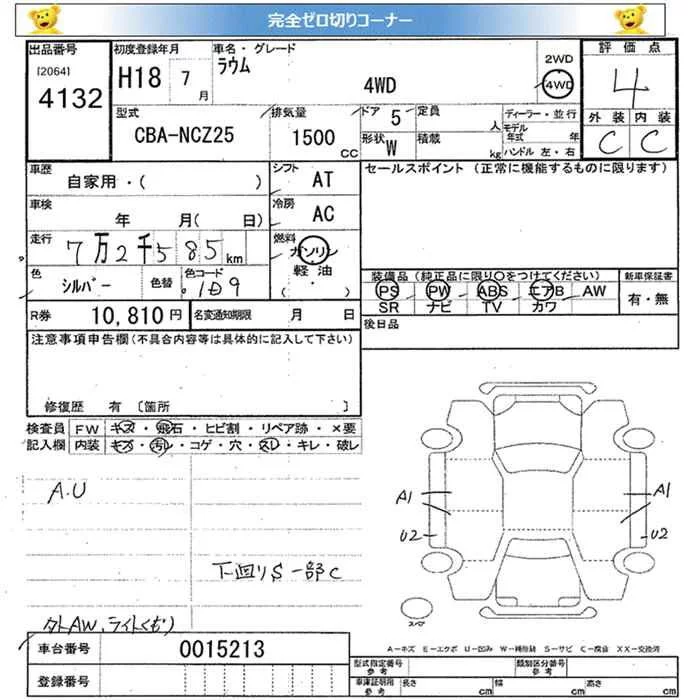 完全ゼロ切りコーナー
出品番号
[2064]
4132
初度登録年月
H18 7月
車名・グレード
ラウム
4WD
2WD
4WD
評価点
4
外装 内装
C C
型式
CBA-NCZ25
排気量
1500 CC
ドア 5
定員 人
形状 W
積載 kg
ディーラー・並行
モデル年式 年
ハンドル 左・右
車歴
自家用・( )
シフト AT
車検
年 月( 日)
冷房 AC
走行
7万2千585km
燃料
ガソリン
軽油
( ・ )
色 シルバー
色替
色コード 1D9
R券 10,810円
名変通知期限 月 日
セールスポイント (正常に機能するものに限ります)
装備品 (純正品に限り○をつけてください)
PS PW ABS エアB AW
SR ナビ TV カワ
新車保証書
有・無
後日品
注意事項申告欄(不具合内容等は具体的に記入して下さい)
修復歴 有 〔箇所
検査員記入欄
FW キズ・飛石・ヒビ割・リペア跡・×要
内装 キズ・汚レ・コゲ・穴・スレ・キレ・破レ
A.U
下回りS一部C
外AW、ライトくもり
A1 A1
U2 U2
スペア
A－キズ E－エクボ U－凹み W－補修跡 S－サビ C－腐食 XX－交換済
車台番号 0015213
登録番号
型式指定番号 参考
類別区分番号 参考
車庫証明用 参考
長さ cm 幅 cm 高さ cm